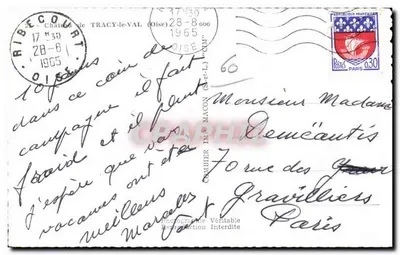 Château de TRACY-le-VAL (Oise) 606
RIBECOURT
17H30
28-8
1965
OISE
17H30
28-8
1965
OISE
REPUBLIQUE FRANCAISE
POSTES
0,30
PARIS
10 jours
dans ce coin de
campagne il fait
froid et il pleut
j'espère que vos
vacances ont été
meilleures
Marcelle
60
Monsieur Madame
Deméautis
70 rue des
Gravilliers
Paris
COMBIER IMP. MACON (S.-et-L.) "CIM"
Photographie Véritable
Reproduction Interdite